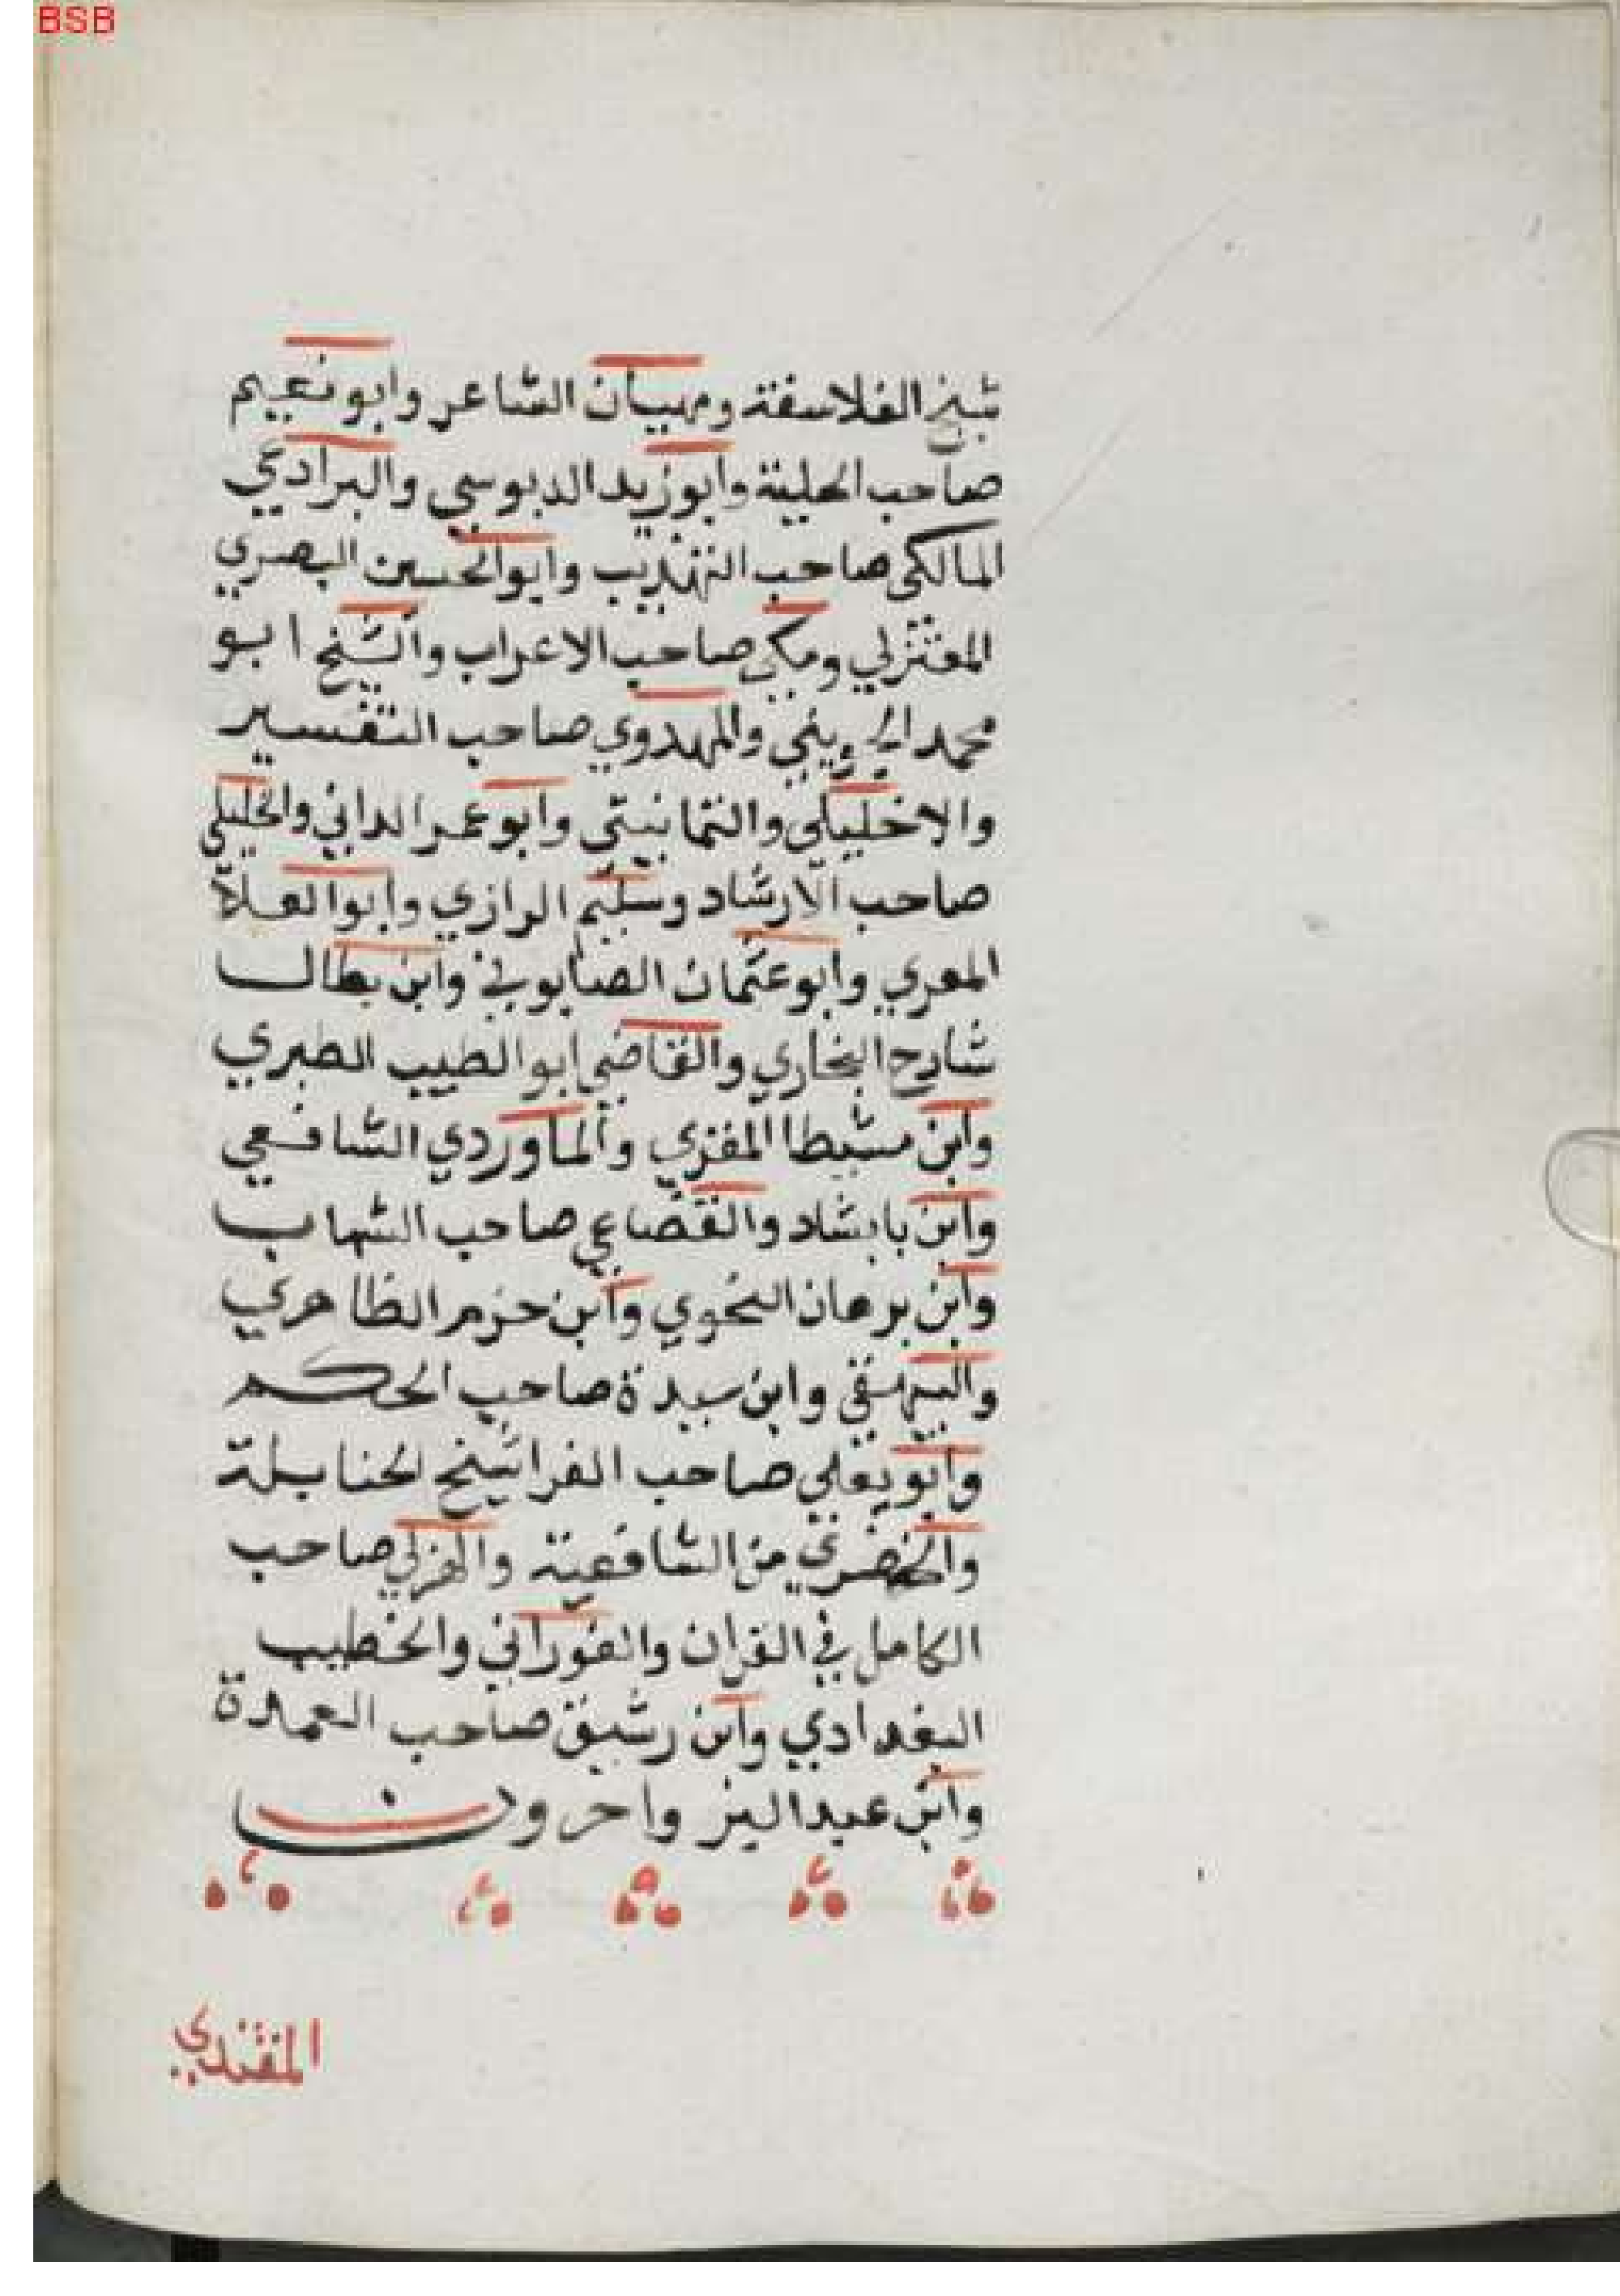 BSB
شيخ الفلاسفة ومهيان الشاعر وابو نعيم
صاحب الحلية وابو زيد الدبوسي والبرادعي
المالكي صاحب التهذيب وابو الحسين البصري
المعتزلي ومكي صاحب الاعراب والشيخ ابو
محمد الجويني والمهدوي صاحب التفسير
والاخليلي والثمانيني وابو عمر الداني والخليلي
صاحب الارشاد وسليم الرازي وابو العلاء
المعري وابو عثمان الصابوني وابن بطال
شارح البخاري والقاضي ابو الطيب الطبري
وابن مشيطا المقري والماوردي الشافعي
وابن بابشاد والقضاعي صاحب الشهاب
وابن برهان النحوي وابن حزم الظاهري
والبيهقي وابن سيدة صاحب الحكم
وابو يعلي صاحب الفرا شيخ الحنابلة
والخضري من الشافعية والهزلي صاحب
الكامل في القران والفوراني والخطيب
البغدادي وابن رشيق صاحب العمدة
وابن عبد البر واخرون
المقتدي